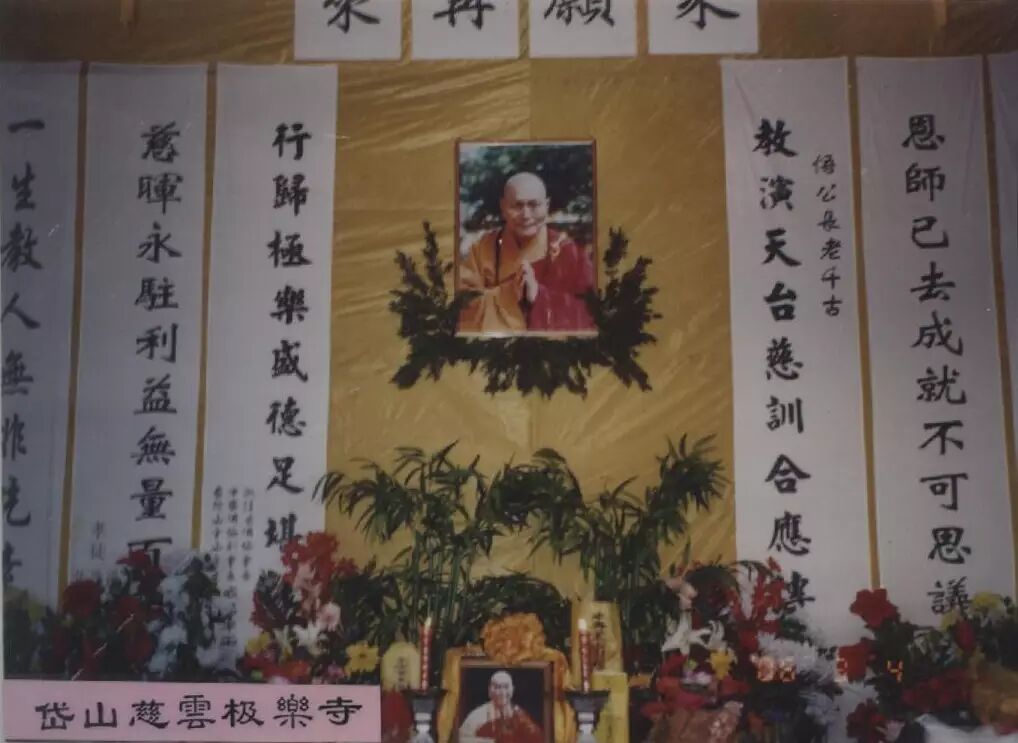 乘願再來
恩師已去成就不可思議
悟公長老千古
教演天台慈訓合應
行歸極樂盛德足堪
慈暉永駐利益無量
孝徒
一生教人無非
岱山慈雲极樂寺